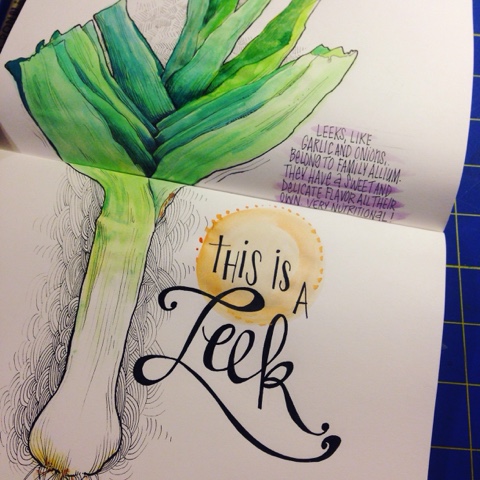 LEEKS, LIKE
GARLIC AND ONIONS,
BELONG TO FAMILY ALLIUM.
THEY HAVE A SWEET AND
DELICATE FLAVOR ALL THEIR
OWN. VERY NUTRITIONAL!
THIS IS
A
Leek